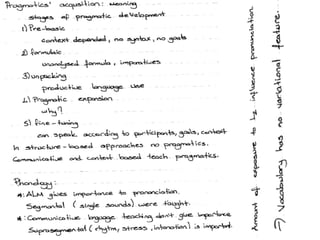 Pragmatics' acquisition: meaning
stages of pragmatic development
1) Pre-basic
context depended, no syntax, no goals
2) formulaic
unanalysed formula, imperatives
3) unpacking
productive language use
4) Pragmatic expansion
why?
5) fine-tuning
can speak according to participants, goals, context
In structure-based approaches no pragmatics.
Communicative and content based teach. pragmatics.
Phonology:
*: ALM gives importance to prononciation.
Segmental (single sounds) were taught.
*: Communicative language teaching don't give importance
Suprasegmental (rhytm, stress, intonation) is important.
Amount of exposure to L2 influence pronunciation.
5) Vocabulary has no variational feature.